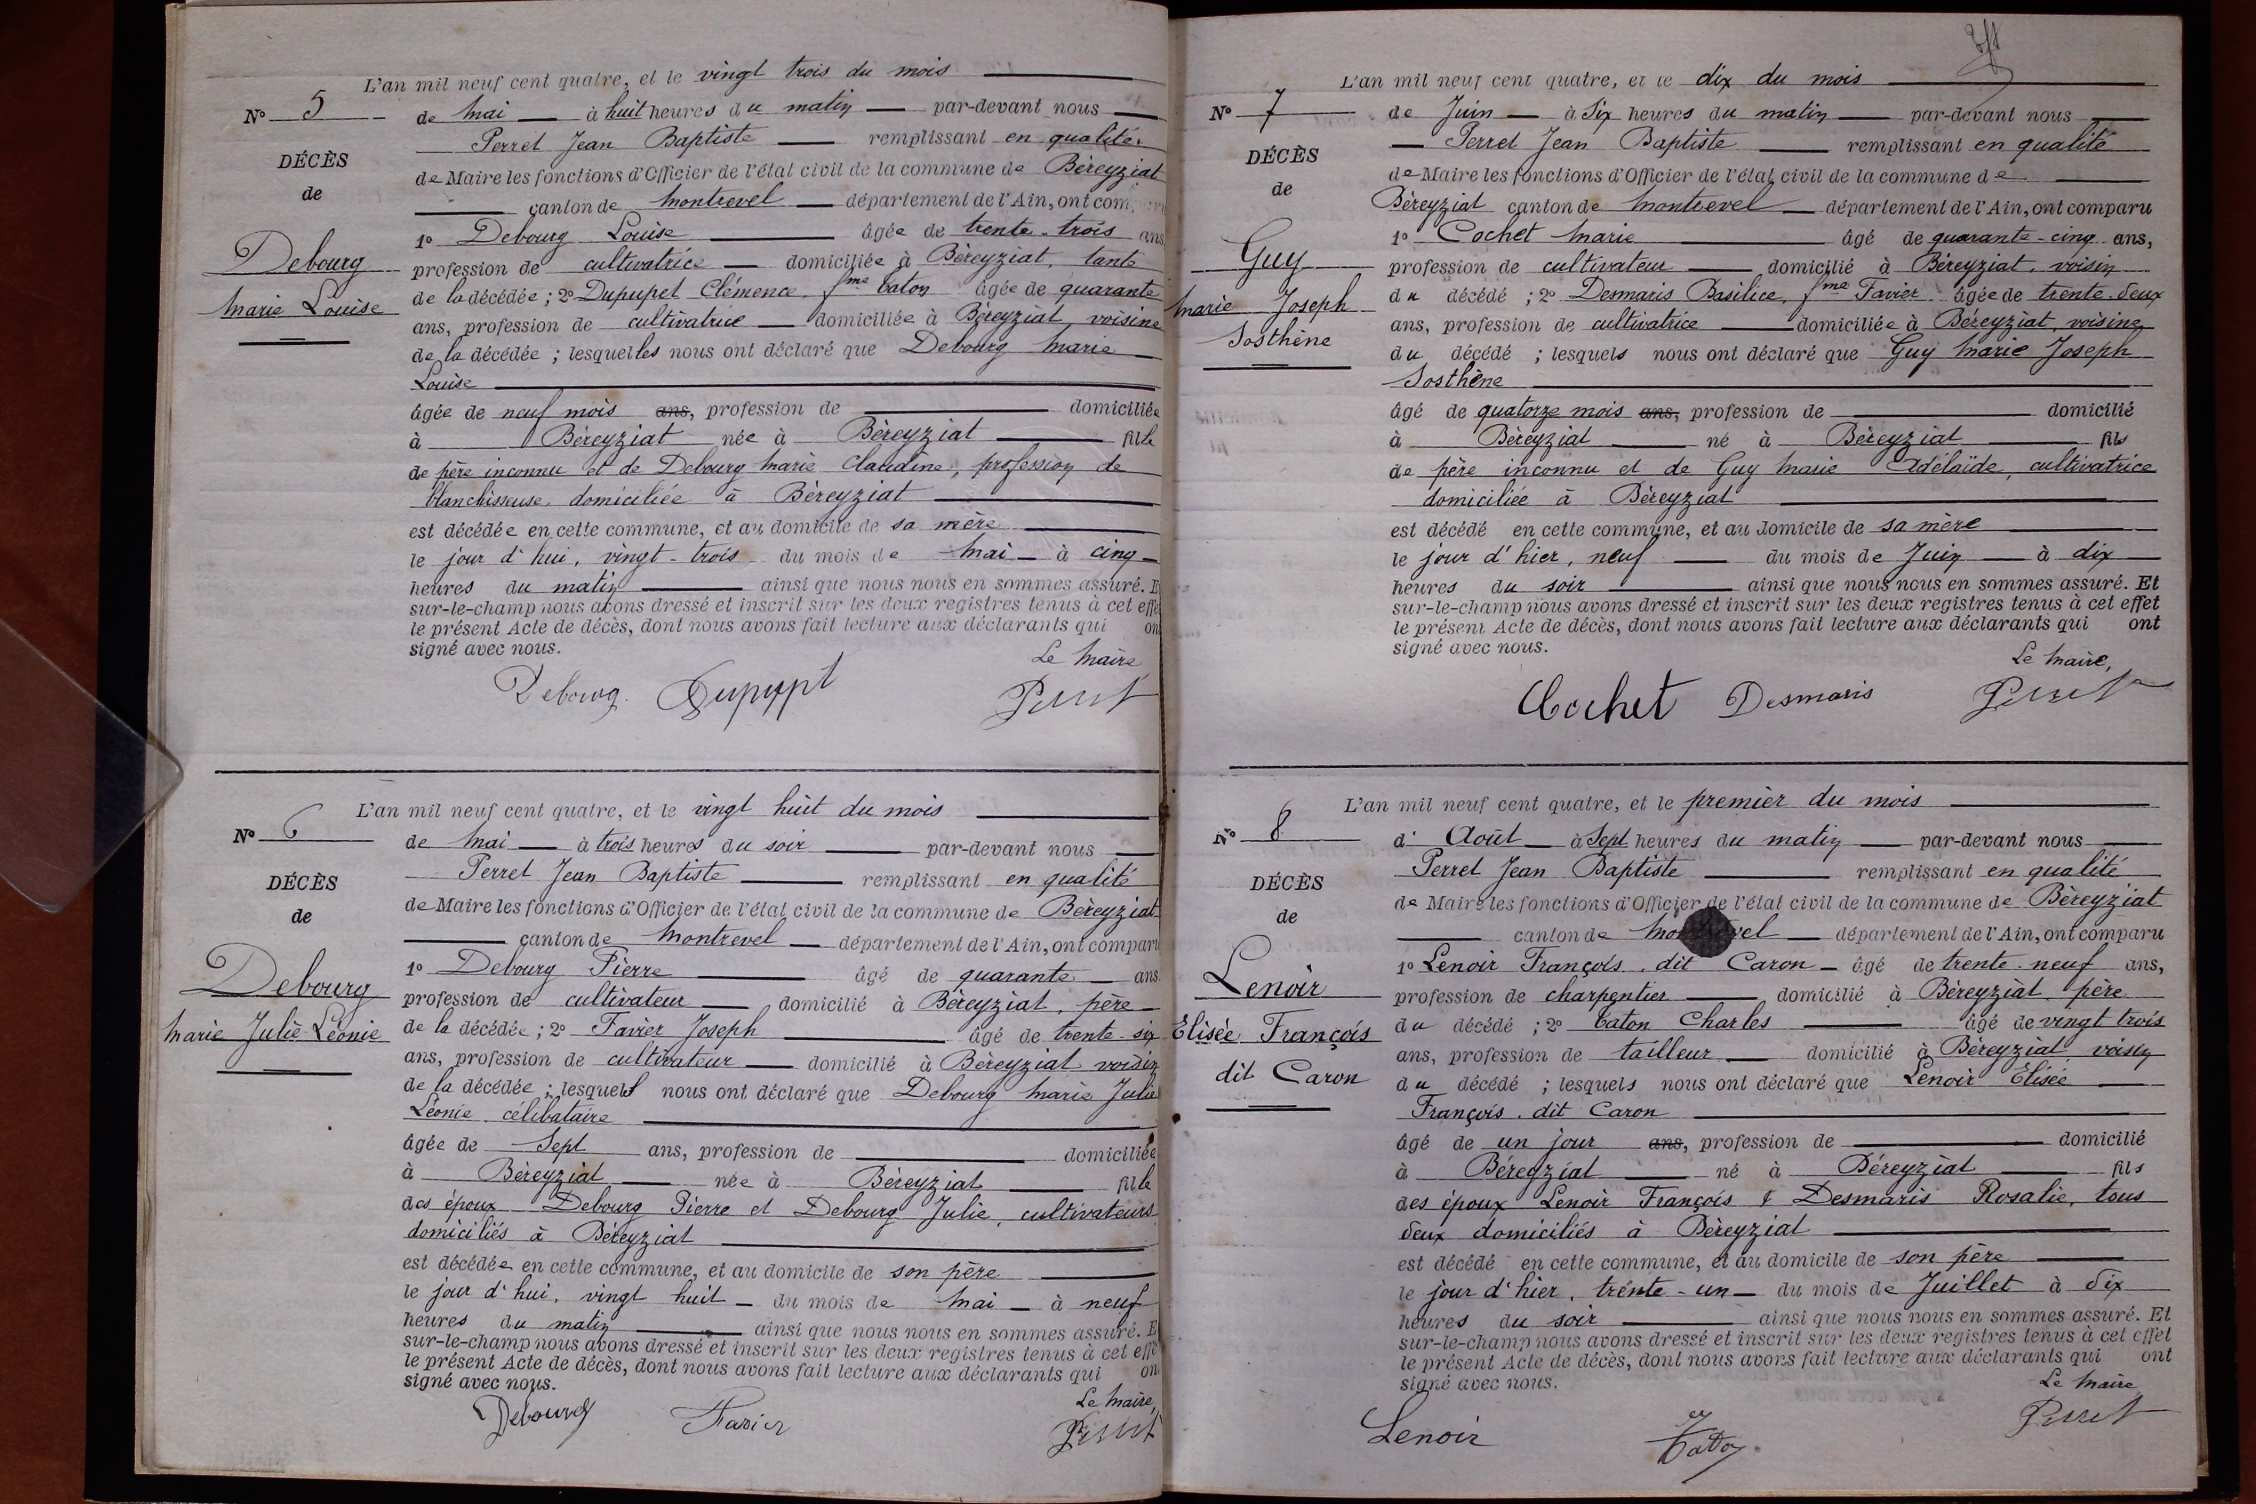 L'an mil neuf cent quatre, et le vingt trois du mois
N° 5
de Mai à huit heures du matin par-devant nous
Perret Jean Baptiste remplissant en qualité
DÉCÈS
de Maire les fonctions d'Officier de l'état civil de la commune de Béreyziat
de
canton de Montrevel département de l'Ain, ont com
1° Debourg Louise âgée de trente-trois ans
Debourg
profession de cultivatrice domiciliée à Béreyziat, tante
Marie Louise
de la décédée ; 2° Dupupet Clémence, fme Caton âgée de quarante
ans, profession de cultivatrice domiciliée à Béreyziat, voisine
de la décédée ; lesquelles nous ont déclaré que Debourg Marie
Louise
âgée de neuf mois ans, profession de domiciliée
à Béreyziat née à Béreyziat fille
de père inconnu et de Debourg Marie Claudine, profession de
blanchisseuse, domiciliée à Béreyziat
est décédée en cette commune, et au domicile de sa mère
le jour d'hui, vingt-trois du mois de Mai à cinq
heures du matin ainsi que nous nous en sommes assuré. E
sur-le-champ nous avons dressé et inscrit sur les deux registres tenus à cet effe
le présent Acte de décès, dont nous avons fait lecture aux déclarants qui on
signé avec nous.
Le Maire
Debourg. Dupupet Perret
L'an mil neuf cent quatre, et le vingt huit du mois
N° 6
de Mai à trois heures du soir par-devant nous
Perret Jean Baptiste remplissant en qualité
DÉCÈS
de Maire les fonctions d'Officier de l'état civil de la commune de Béreyziat
de
canton de Montrevel département de l'Ain, ont comparu
1° Debourg Pierre âgé de quarante ans
Debourg
profession de cultivateur domicilié à Béreyziat, père
Marie Julie Léonie
de la décédée ; 2° Favier Joseph âgé de trente-six
ans, profession de cultivateur domicilié à Béreyziat voisin
de la décédée ; lesquels nous ont déclaré que Debourg Marie Julie
Léonie célibataire
âgée de Sept ans, profession de domiciliée
à Béreyziat née à Béreyziat fille
des époux Debourg Pierre et Debourg Julie, cultivateurs
domiciliés à Béreyziat
est décédée en cette commune, et au domicile de son père
le jour d'hui, vingt huit du mois de Mai à neuf
heures du matin ainsi que nous nous en sommes assuré. E
sur-le-champ nous avons dressé et inscrit sur les deux registres tenus à cet effe
le présent Acte de décès, dont nous avons fait lecture aux déclarants qui on
signé avec nous.
Le Maire,
Debourg Favier Perret
L'an mil neuf cent quatre, et le dix du mois
N° 7
de Juin à Six heures du matin par-devant nous
Perret Jean Baptiste remplissant en qualité
DÉCÈS
de Maire les fonctions d'Officier de l'état civil de la commune de
de
Béreyziat canton de Montrevel département de l'Ain, ont comparu
1° Cochet Marie âgé de quarante-cinq ans,
Guy
profession de cultivateur domicilié à Béreyziat, voisin
Marie Joseph
du décédé ; 2° Desmaris Basilice, fme Favier âgée de trente-deux
Sosthène
ans, profession de cultivatrice domiciliée à Béreyziat, voisine
du décédé ; lesquels nous ont déclaré que Guy Marie Joseph
Sosthène
âgé de quatorze mois ans, profession de domicilié
à Béreyziat né à Béreyziat fils
de père inconnu et de Guy Marie Adélaïde, cultivatrice
domiciliée à Béreyziat
est décédé en cette commune, et au domicile de sa mère
le jour d'hier, neuf du mois de Juin à dix
heures du soir ainsi que nous nous en sommes assuré. Et
sur-le-champ nous avons dressé et inscrit sur les deux registres tenus à cet effet
le présent Acte de décès, dont nous avons fait lecture aux déclarants qui ont
signé avec nous.
Le Maire,
Cochet Desmaris Perret
L'an mil neuf cent quatre, et le premier du mois
N° 8
d' Août à Sept heures du matin par-devant nous
Perret Jean Baptiste remplissant en qualité
DÉCÈS
de Maire les fonctions d'Officier de l'état civil de la commune de Béreyziat
de
canton de Montrevel département de l'Ain, ont comparu
1° Lenoir François, dit Caron âgé de trente-neuf ans,
Lenoir
profession de charpentier domicilié à Béreyziat, père
Elisée François
du décédé ; 2° Caton Charles âgé de vingt trois
dit Caron
ans, profession de tailleur domicilié à Béreyziat, voisin
du décédé ; lesquels nous ont déclaré que Lenoir Elisée
François, dit Caron
âgé de un jour ans, profession de domicilié
à Béreyziat né à Béreyziat fils
des époux Lenoir François & Desmaris Rosalie, tous
deux domiciliés à Béreyziat
est décédé en cette commune, et au domicile de son père
le jour d'hier, trente-un du mois de Juillet à dix
heures du soir ainsi que nous nous en sommes assuré. Et
sur-le-champ nous avons dressé et inscrit sur les deux registres tenus à cet effet
le présent Acte de décès, dont nous avons fait lecture aux déclarants qui ont
signé avec nous.
Le Maire
Lenoir Caton Perret